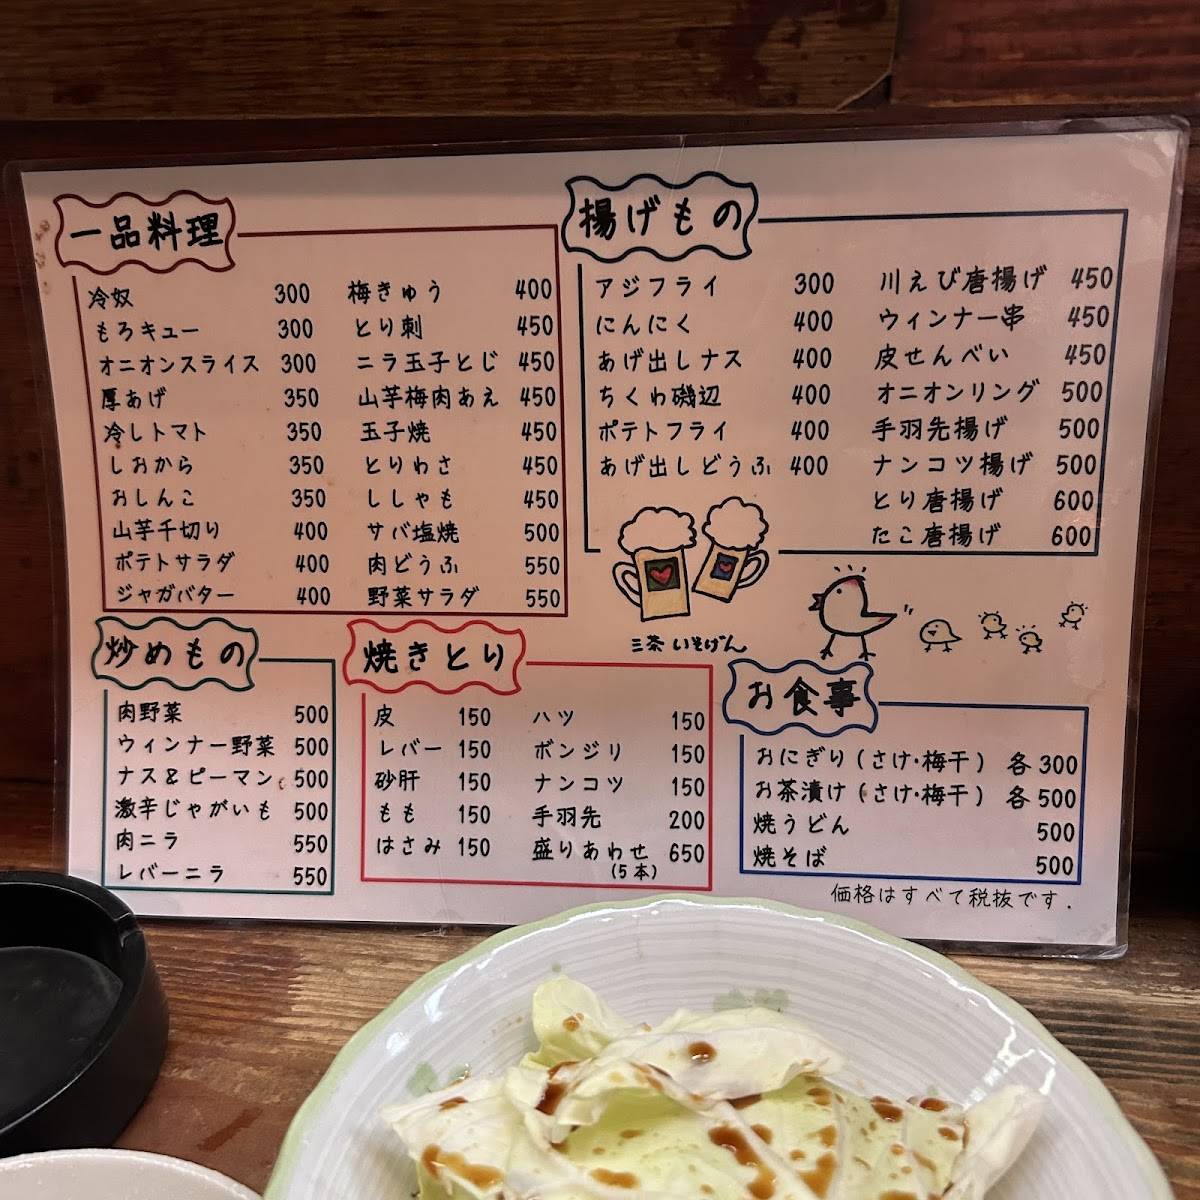 一品料理
冷奴 300
もろキュー 300
オニオンスライス 300
厚あげ 350
冷しトマト 350
しおから 350
おしんこ 350
山芋千切り 400
ポテトサラダ 400
ジャガバター 400
梅きゅう 400
とり刺 450
ニラ玉子とじ 450
山芋梅肉あえ 450
玉子焼 450
とりわさ 450
ししゃも 450
サバ塩焼 500
肉どうふ 550
野菜サラダ 550
揚げもの
アジフライ 300
にんにく 400
あげ出しナス 400
ちくわ磯辺 400
ポテトフライ 400
あげ出しどうふ 400
川えび唐揚げ 450
ウィンナー串 450
皮せんべい 450
オニオンリング 500
手羽先揚げ 500
ナンコツ揚げ 500
とり唐揚げ 600
たこ唐揚げ 600
三茶 いそげん
炒めもの
肉野菜 500
ウィンナー野菜 500
ナス&ピーマン 500
激辛じゃがいも 500
肉ニラ 550
レバーニラ 550
焼きとり
皮 150
レバー 150
砂肝 150
もも 150
はさみ 150
ハツ 150
ボンジリ 150
ナンコツ 150
手羽先 200
盛りあわせ 650
(5本)
お食事
おにぎり(さけ・梅干) 各300
お茶漬け(さけ・梅干) 各500
焼うどん 500
焼そば 500
価格はすべて税抜です.